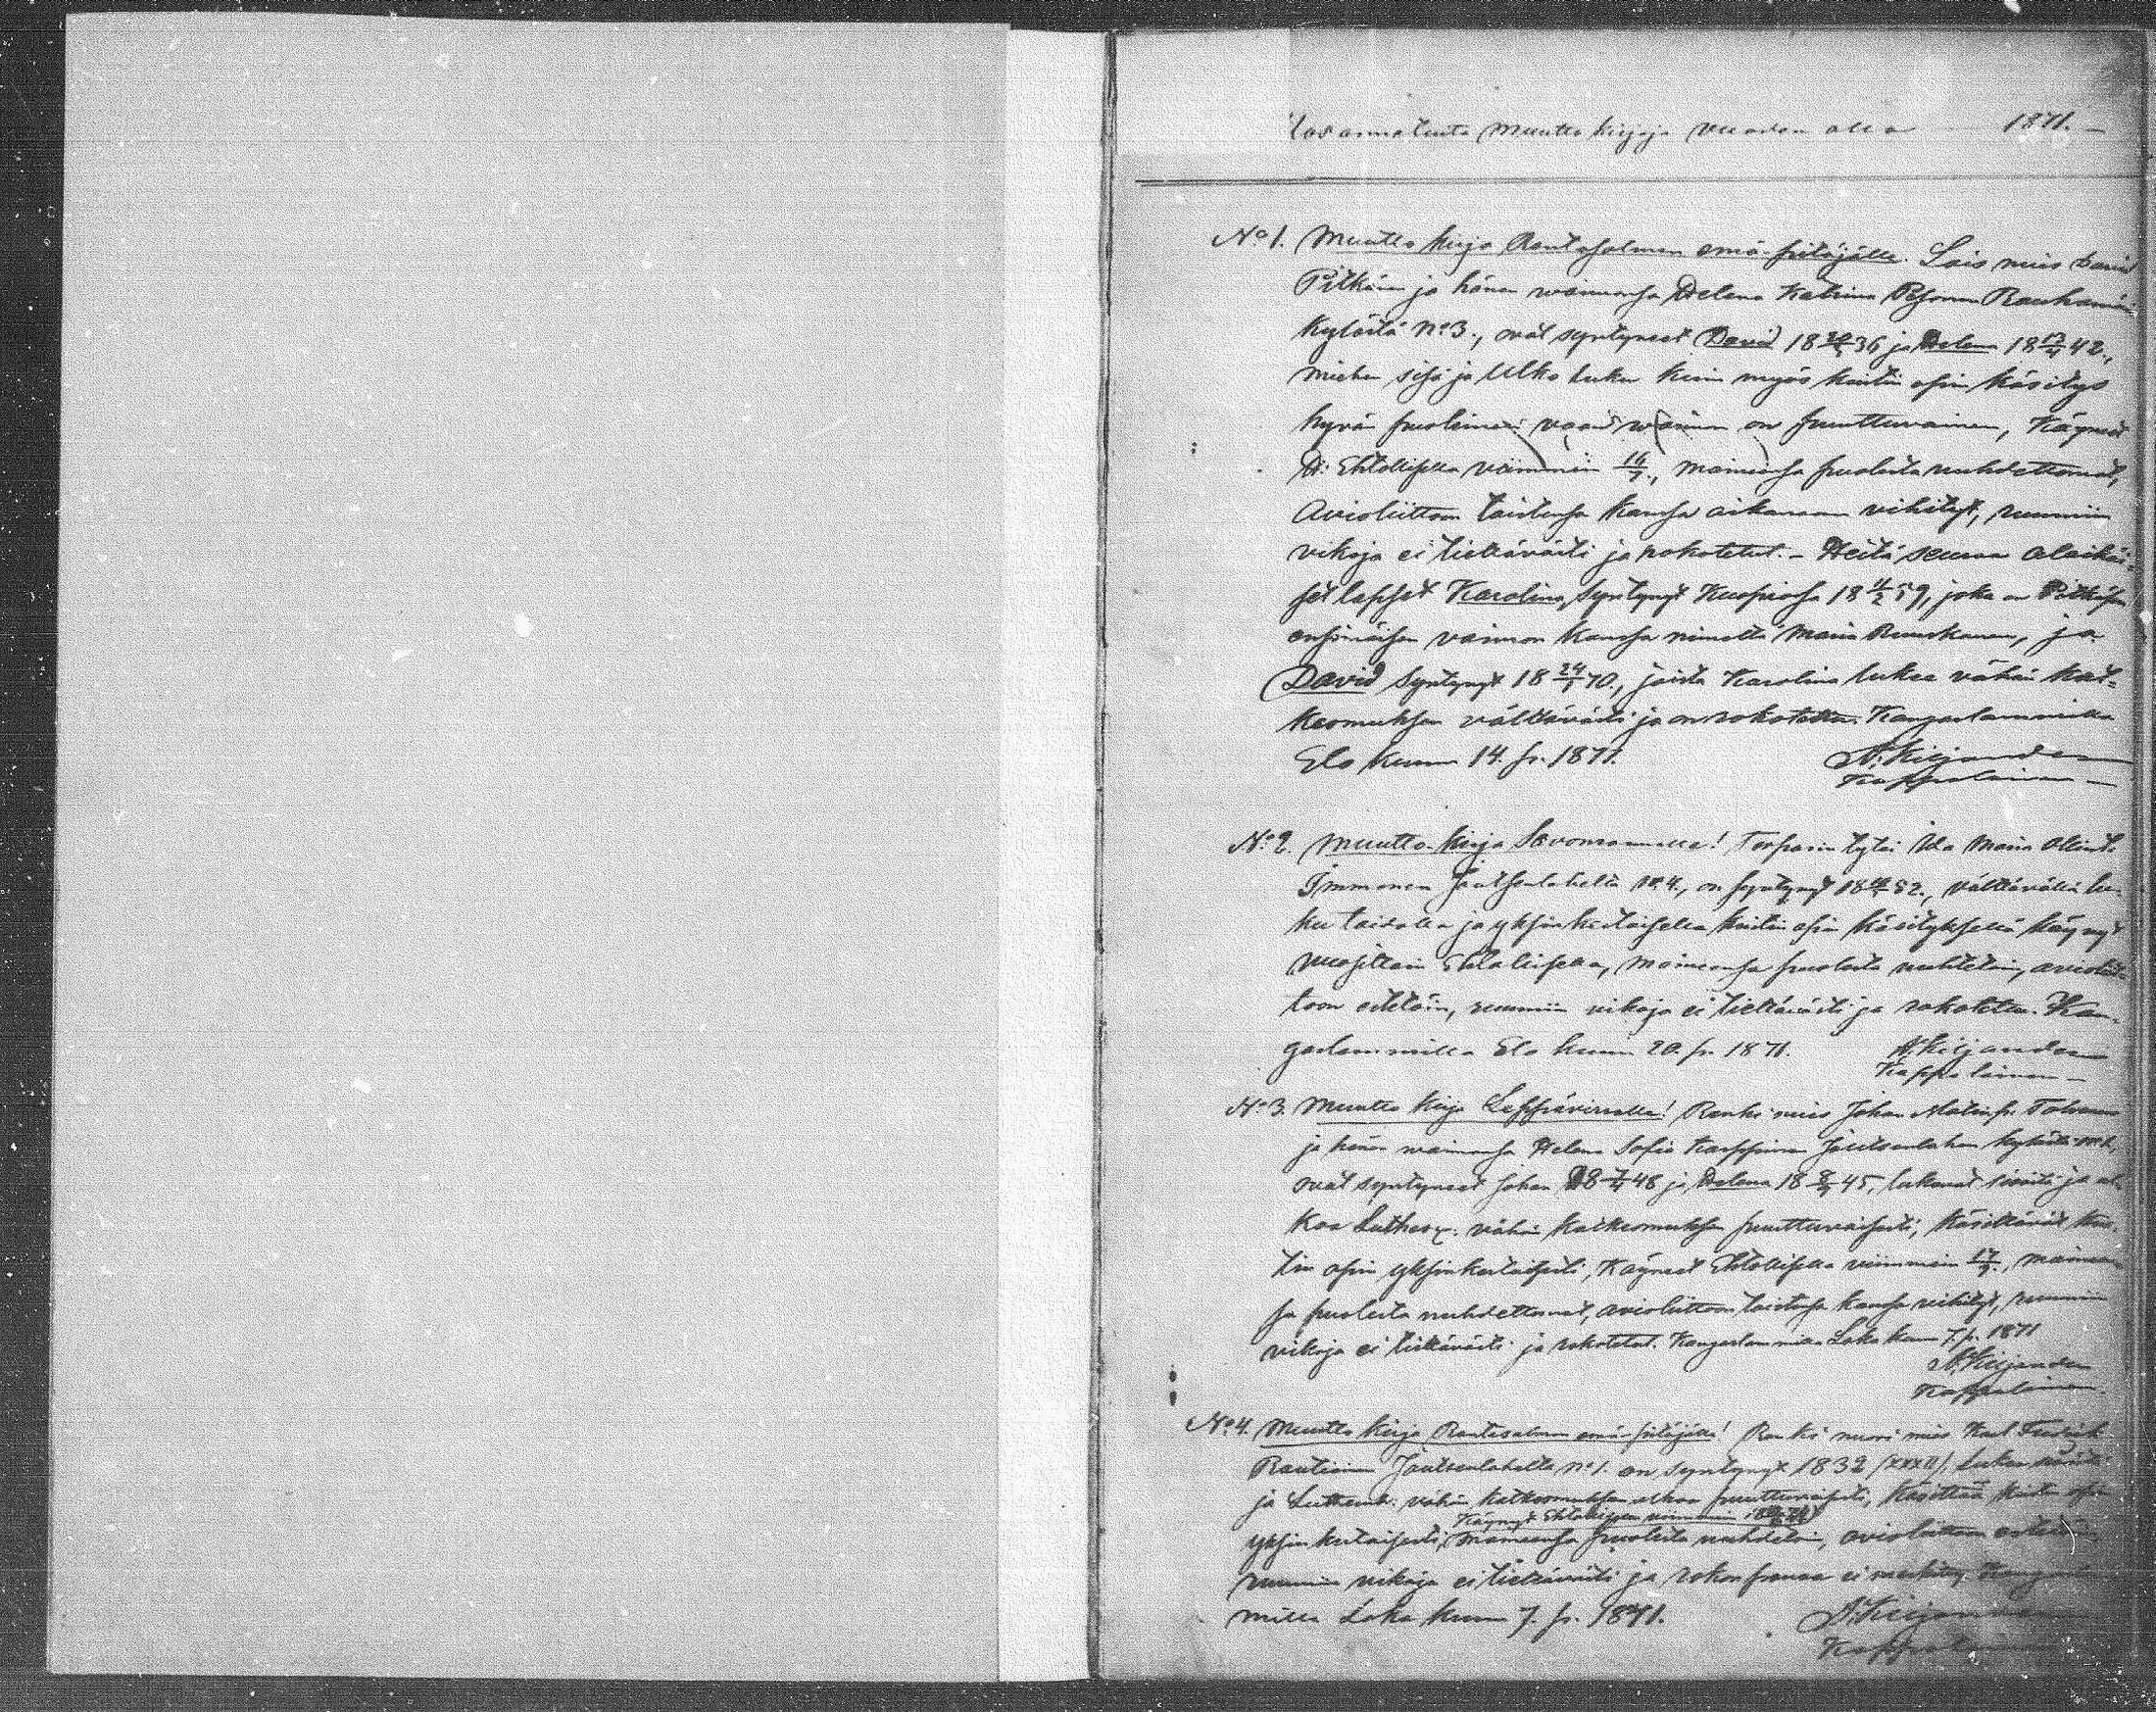 Ulosannetuita Muutto kirjoja vuodon alla 1871. —
No 1. Muutto kirja Rantasalmen emä-pitäjälle. Lois mies David
Pitkänen ja hänen waimonsa Helena Katrina Pesonen Rauhamäki
kylästä No 3., ovat syntyneet David 18 36 ja Helena 18 42.,
miehen sisä ja Ulko luku kuin myös kristin opin käsitys
hyvän puolinen vaan waimon on puuttuvainen, Käyneet
H: Ehtollisella viimmein maineensa puolesta nuhdettomat,
Avioliittoon toistensa kanssa aikanaan vihityt, ruumiin
vikoja ei tiettävästi ja rokotetut. - Heitä seuraa alaikäi-
set lapset Karolina, syntynyt Kuopiossa 18 59, joka on Pitkäsen
ensimäisen vaimon kanssa nimeltä Maria Ruuskanen, ja
David syntynyt 18 24/1 70., joista Karolina lukee vähän Kat-
keomuksen välttävästi ja on rokotettu. Kangaslammilla
Elo kuun 14. p. 1871. A. Kiljander
Kappalainen —
No 2. Muutto-kirja Savonrannalle! Torparin tytär Ida Maria Ollint.
Immonen Joutsenlahelta No 4., on syntynyt 18 52., välttävällä lu-
ku taidolla ja yksinkertaisella kristin opin käsityksellä käynyt
vuosittain Ehtollisella, maineensa puolesta nuhteton, avioliit-
toon estetöin, ruumiin vikoja ei tiettävästi ja rokotettu. Kan-
gaslammilla Elo kuun 20. p. 1871. A. Kiljander
Kappalainen —
No 3. Muutto kirja Leppävirralle! Renki mies Johan Matinp. Tolvanen
ja hänen waimonsa Helena Sofia Karppinen Joutsenlahen kylästä
ovat syntyneet Johan 18 48 ja Helena 18 45, lukevat sisästä ja ul-
koa Luther: vähän Katkeomuksen puuttuvaisesti, käsittävät kris-
tin opin yksinkertaisesti, Käyneet Ehtollisella viimmein maineen-
sa puolesta nuhdettomat, avioliittoon toistensa kanssa vihityt, ruumiin
vikoja ei tiettävästi ja rokotetut. Kangaslammilla Loka kuun 7. p. 1871
A. Kiljander
Kappalainen.
No 4. Muutto kirja Rantasalmen emä-pitäjälle! Renki nuori mies Karl Fredrik
Rautiainen Joutsenlahelta No 1. on syntynyt 1832 (XXXII). Lukee sisästä
ja Lutheruk: vähän katkeomuksen ulkoa puuttuvaisesti, Käsittää kristin opin
Käynyt Ehtollisella viimmein
yksinkertaisesti, maineensa puolesta nuhdetoin, avioliittoon estetöin
ruumiin vikoja ei tiettävästi ja rokon panoa ei merkitty. Kangaslam-
milla Loka kuun 7. p. 1871. A. Kiljander
Kappalainen